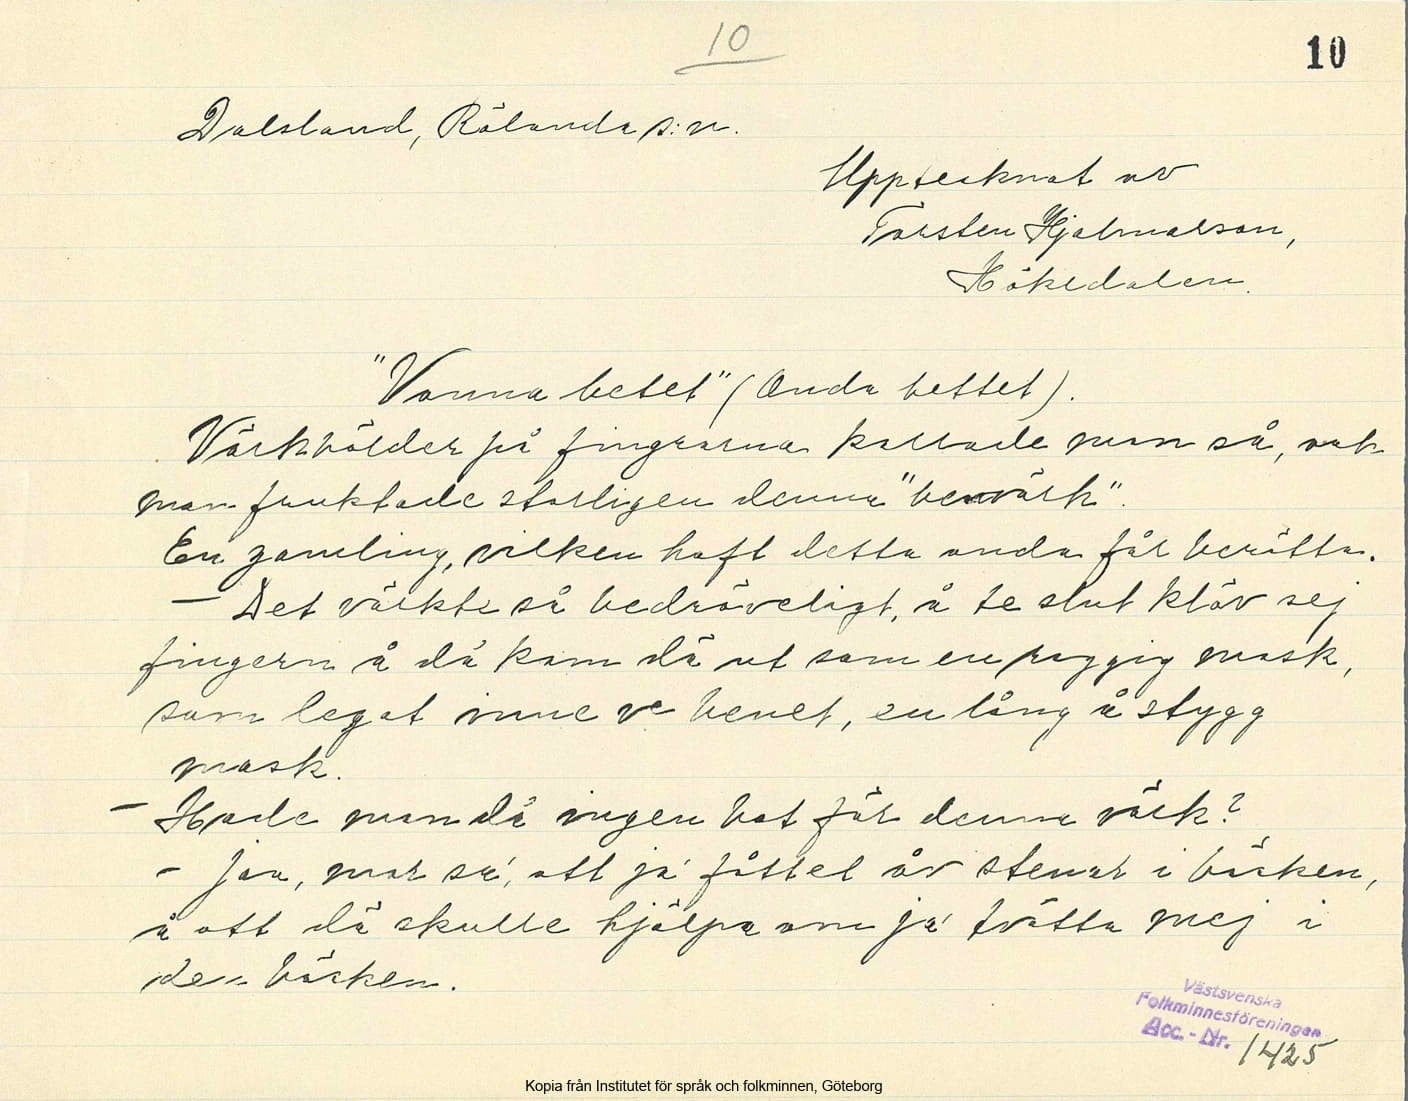 10
10
Dalsland, Rölanda s:n.
Upptecknat av
Torsten Hjalmarson,
Hökedalen.
"Vonna betet" (Onda bettet).
Värkbölder på fingrarna kallade man så, och
man fruktade storligen denna "benvärk".
En gamling, vilken haft detta onda får berätta.
— Det värkte så bedröveligt, å te slut klöv sej
fingern å då kom dä ut som en raggig mask,
som legat inne ve benet, en lång å stygg
mask.
— Hade man då ingen bot för denna värk?
- Jaa, mor sa', att ja' fåttet åv stenar i bäcken,
å att dä skulle hjälpa om ja' tvätta mej i
den bäcken.
Västsvenska
Folkminnesföreningen
Acc. - Nr. 1425
Kopia från Institutet för språk och folkminnen, Göteborg